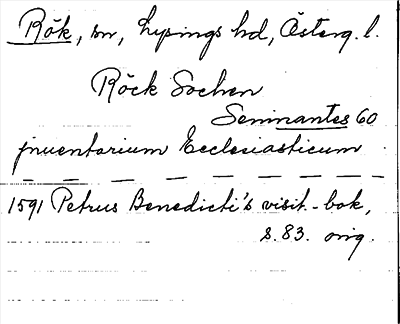 Rök, sn, Lysings hd, Österg. l.
Röck Sochen
Seminantes 60
jnuentarium Ecclesiasticum
1591 Petrus Benedicti's visit.-bok,
s. 83. orig.